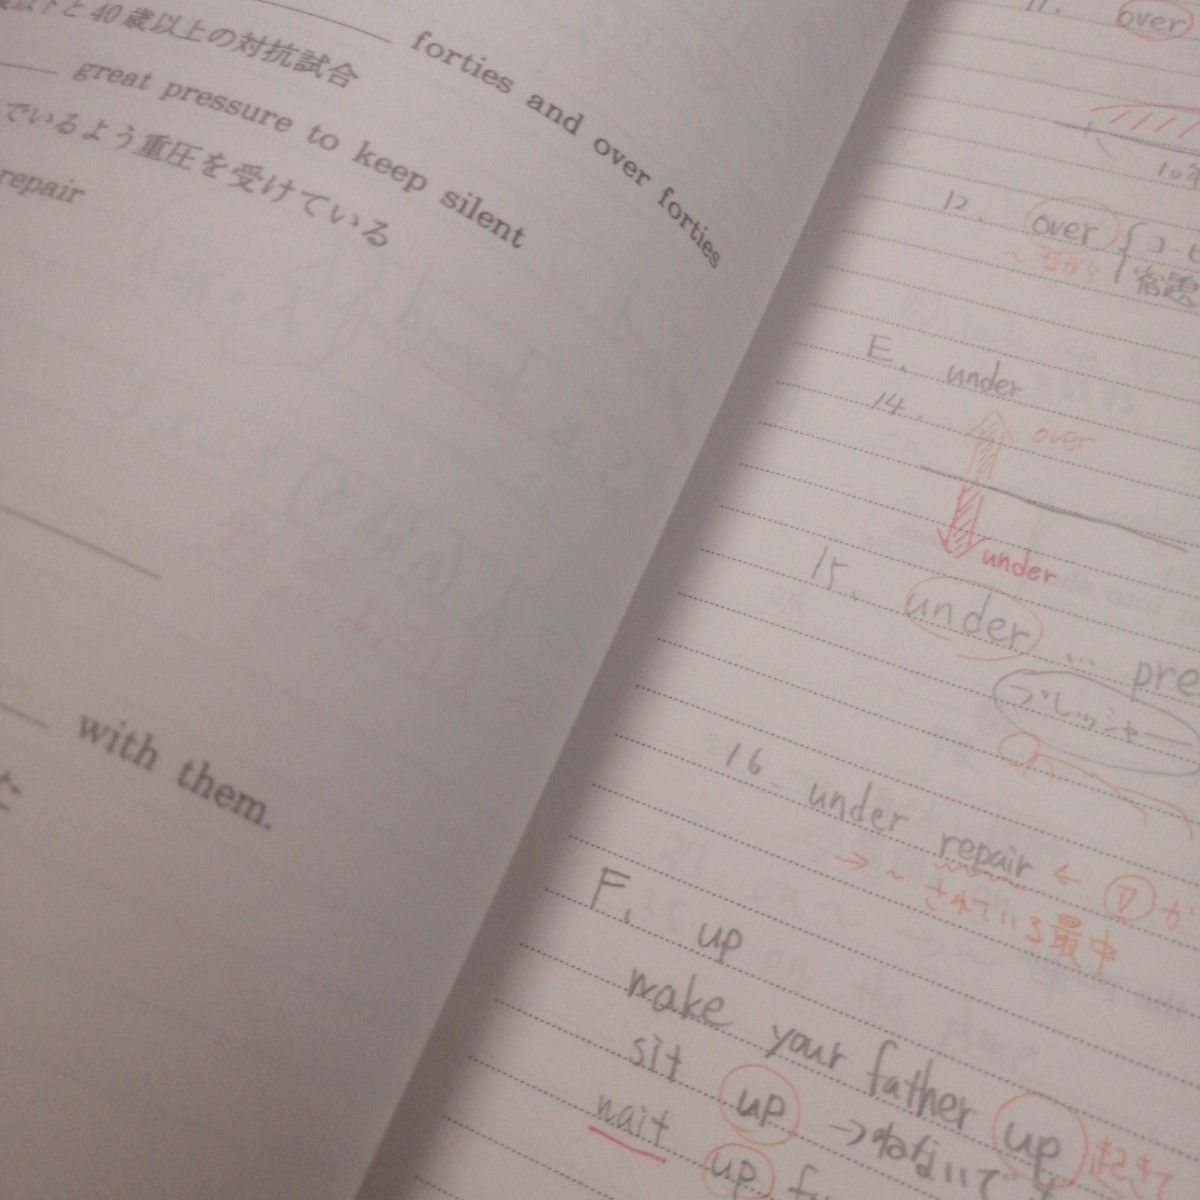 forties and over forties
以下と40歳以上の対抗試合
great pressure to keep silent
でいるよう重圧を受けている
repair
with them.
た
11. over
12. over
宿題
E. under
14.
over
under
15. under ... pre
プレッシャー
16. under repair ←
→ ～されている最中
F. up
make your father up 起きて
sit up →ねないで
wait up